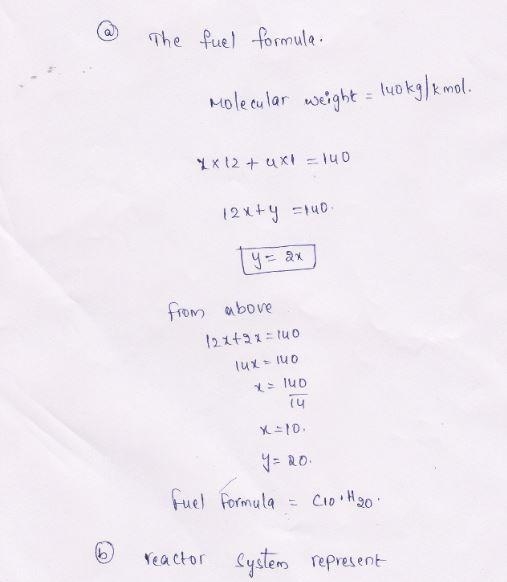 (a) The fuel formula.
Molecular weight = 140 kg/kmol.
x×12 + y×1 = 140
12x+y = 140.
y = 2x
from above
12x+2x = 140
14x = 140
x = 140/14
x = 10.
y = 20.
fuel formula = C10.H20.
(b) reactor system represent